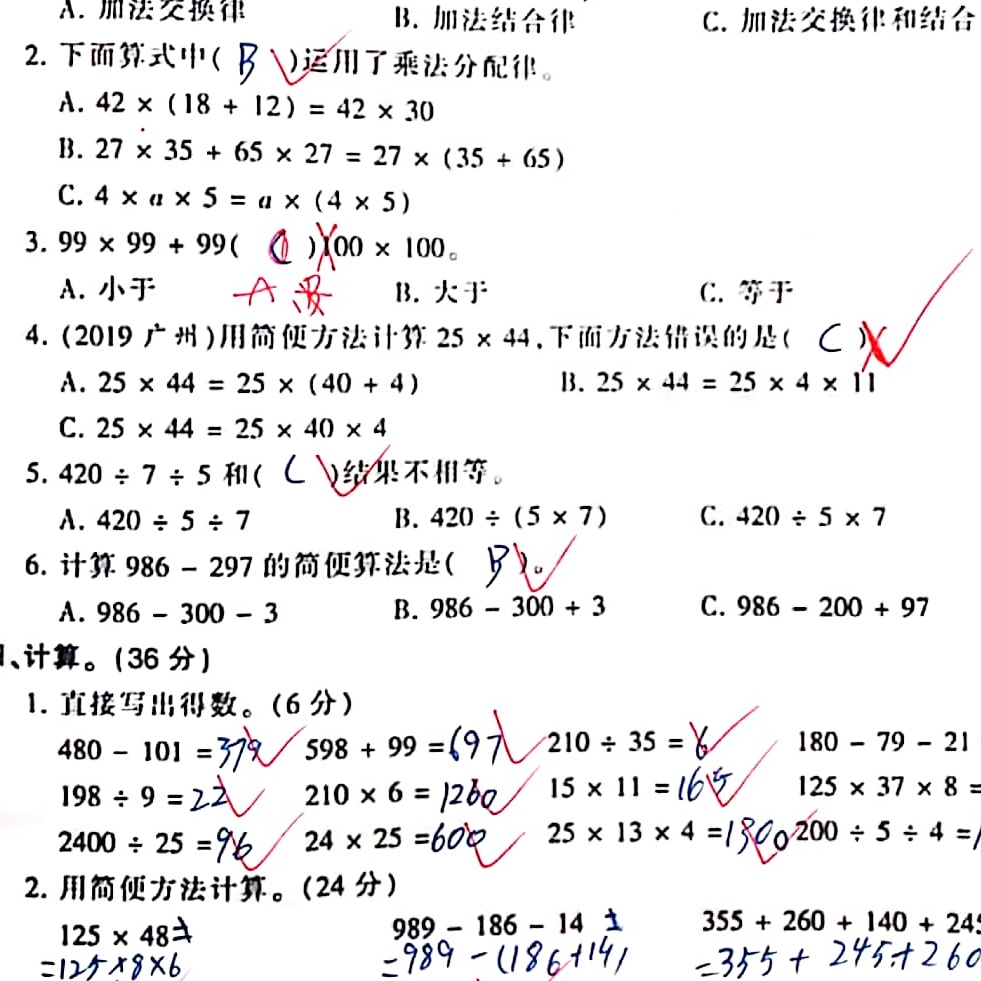 A. 加法交换律 B. 加法结合律 C. 加法交换律和结合
2. 下面算式中( B )运用了乘法分配律。
A. 42 × (18 + 12) = 42 × 30
B. 27 × 35 + 65 × 27 = 27 × (35 + 65)
C. 4 × a × 5 = a × (4 × 5)
3. 99 × 99 + 99( )100 × 100。
A. 小于 A B. 大于 C. 等于
4. (2019 广州)用简便方法计算 25 × 44,下面方法错误的是( C )
A. 25 × 44 = 25 × (40 + 4) B. 25 × 44 = 25 × 4 × 11
C. 25 × 44 = 25 × 40 × 4
5. 420 ÷ 7 ÷ 5 和( C )结果不相等。
A. 420 ÷ 5 ÷ 7 B. 420 ÷ (5 × 7) C. 420 ÷ 5 × 7
6. 计算 986 - 297 的简便算法是( B )。
A. 986 - 300 - 3 B. 986 - 300 + 3 C. 986 - 200 + 97
、计算。(36 分)
1. 直接写出得数。(6 分)
480 - 101 = 379 598 + 99 = 697 210 ÷ 35 = 6 180 - 79 - 21
198 ÷ 9 = 22 210 × 6 = 1260 15 × 11 = 165 125 × 37 × 8 =
2400 ÷ 25 = 96 24 × 25 = 600 25 × 13 × 4 = 1300 200 ÷ 5 ÷ 4 =
2. 用简便方法计算。(24 分)
125 × 48 989 - 186 - 14 355 + 260 + 140 + 245
=125×8×6 =989-(186+14) =355+245+260